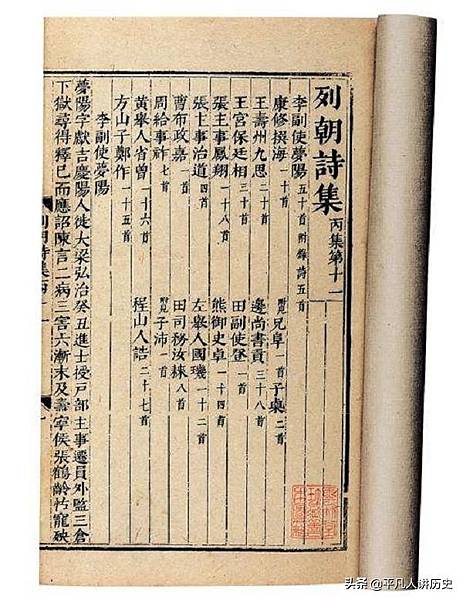 列朝詩集 丙集第十一
李副使夢陽 五十首 附錄詩五首
康修撰海 一十首 附見兄阜一首 子 二首
王壽州九思 二十首 邊尚書貢 三十八首
王宮保廷相 三十首 田副使登 一首
張主事鳳翔 一十八首 熊御史卓 四首
張主事治道 四首 左舉人國璣 一十二首
曹布政嘉 一首 田司務汝 八首
周給事祚 七首 附見子沛 一首
黃舉人省曾 一十六首 程山人誥 二十七首
方山子鄭作 一十五首
李副使夢陽
夢陽字獻吉慶陽人徙大梁弘治癸丑進士授戶部主事遷員外監三倉
下獄尋得釋已而應詔陳言二病三害六漸末及壽寧侯張鶴齡怙寵殃
列朝詩集丙
头条 @平凡人讲历史